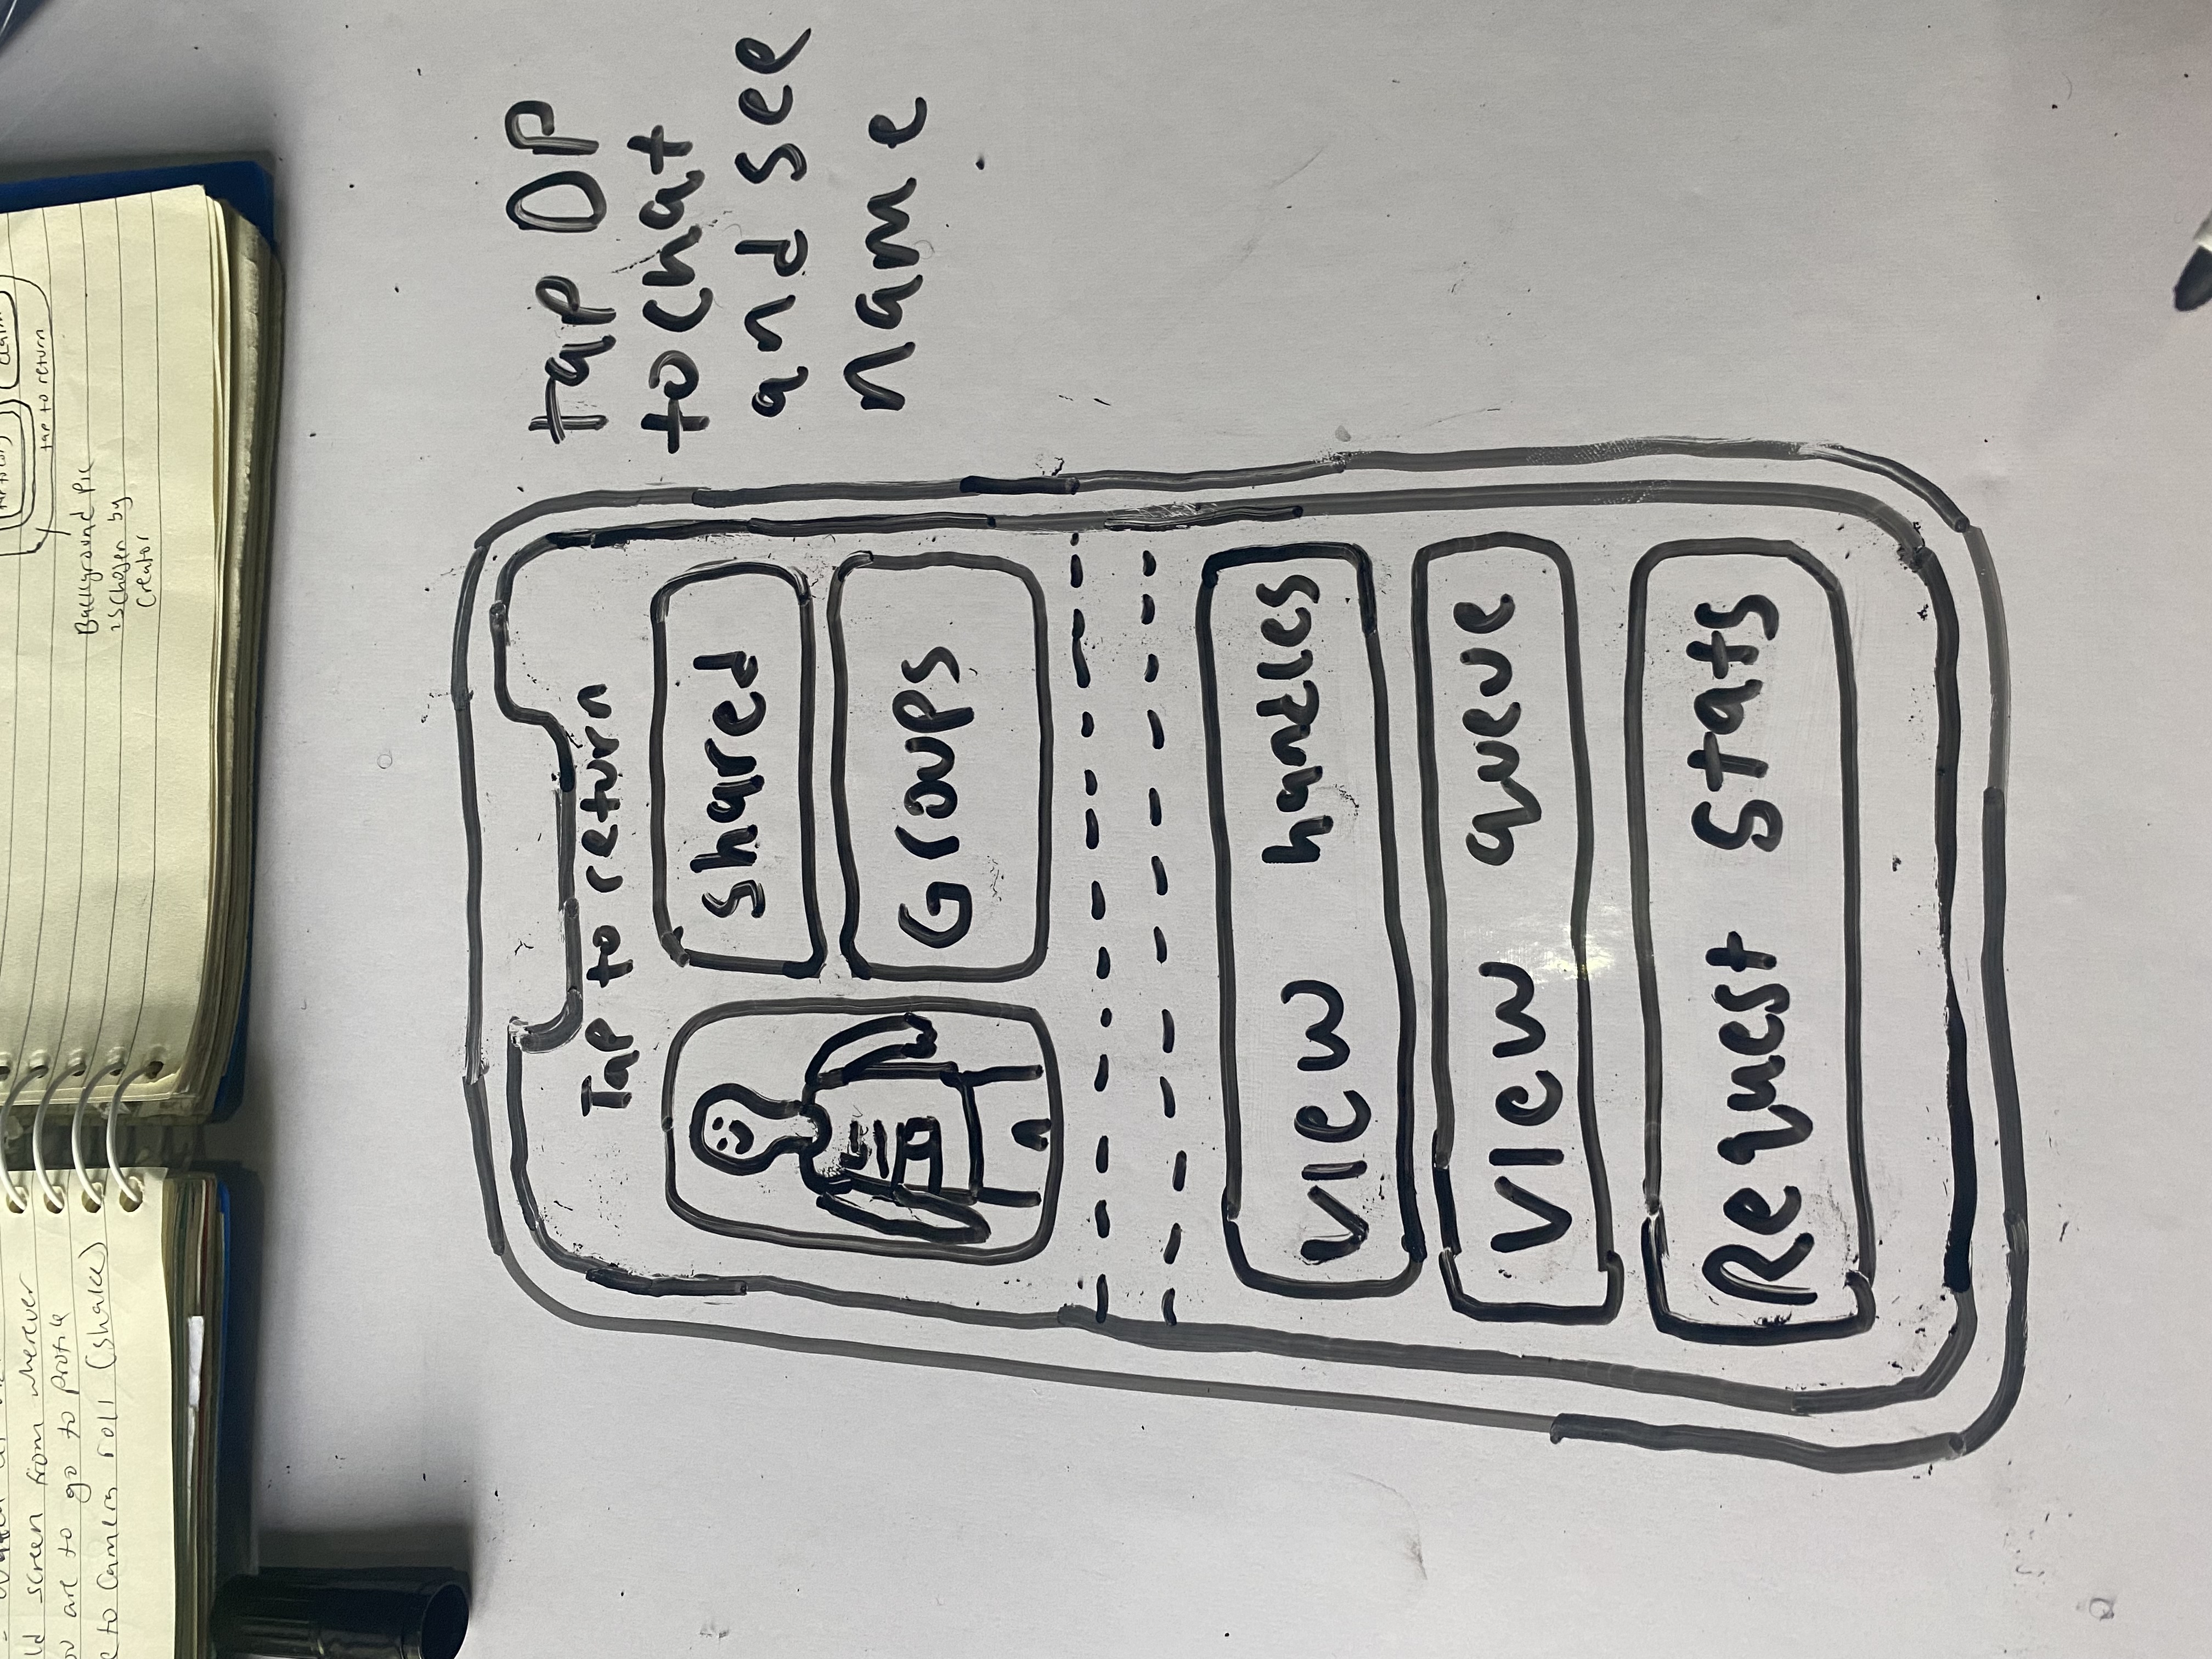 ld screen from wherever
are to go to profile
to Camera roll (shake)
claim
tap to return
Background Pic
is chosen by
Creator
Tap to return
Shared
Groups
View handles
View queue
Request Stats
tap DP
to chat
and see
name